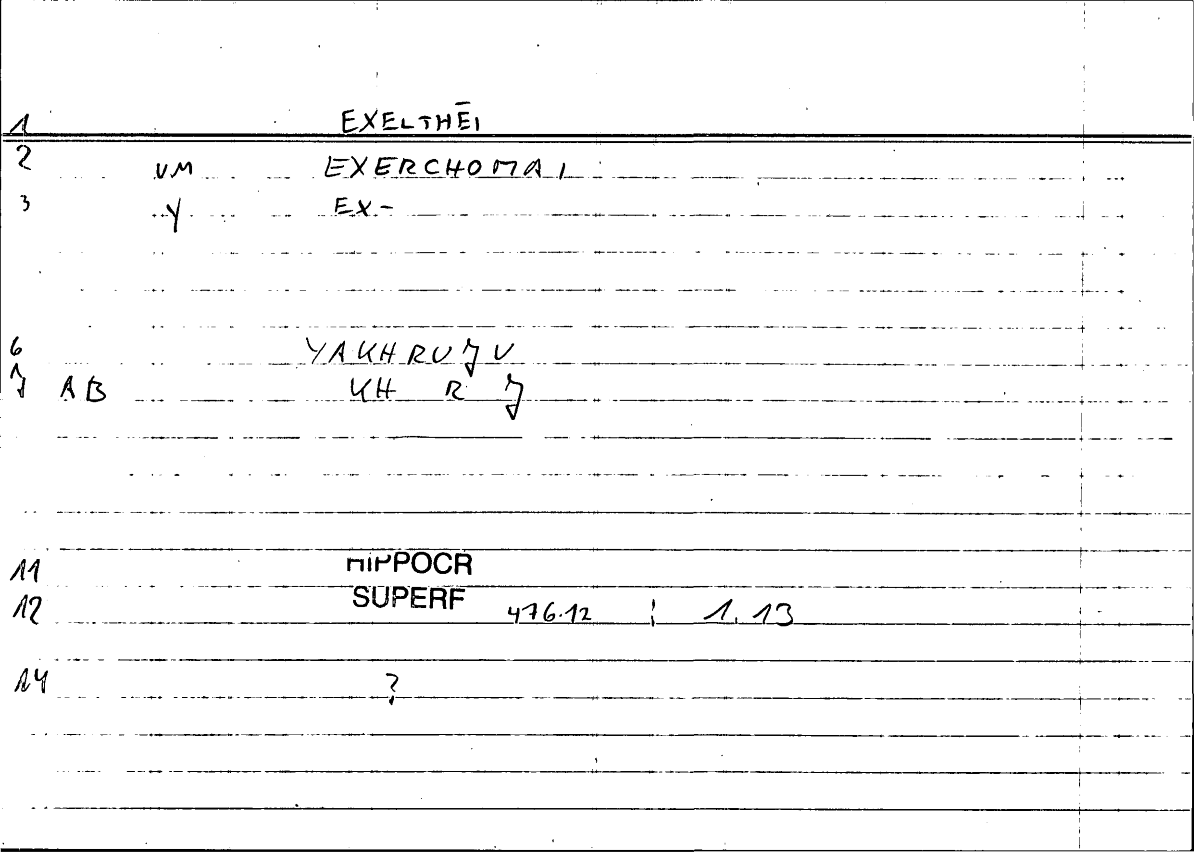 1 EXELTHĒI
2 VM EXERCHOMAI
3 Y EX-
6 YAKHRUJU
7 AB KH R J
11 HIPPOCR
12 SUPERF 476.12 ; 1.13
14 ?